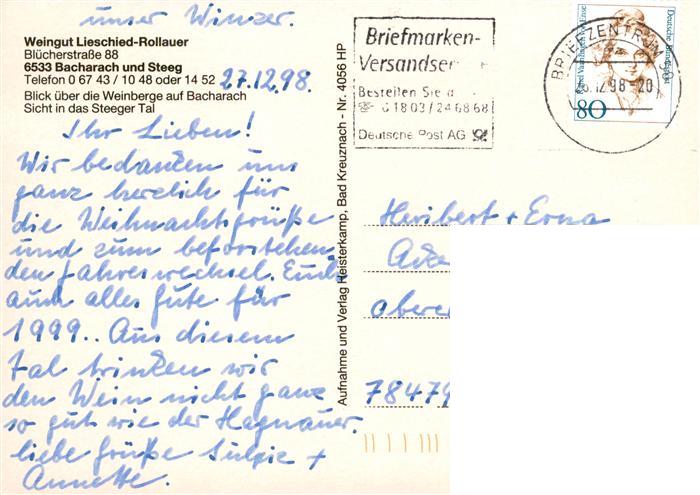 unser Winzer.
Weingut Lieschied-Rollauer
Blücherstraße 88
6533 Bacharach und Steeg
Telefon 0 67 43 / 10 48 oder 14 52
27.12.98.
Blick über die Weinberge auf Bacharach
Sicht in das Steeger Tal
Ihr Lieben!
Wir bedanken uns
ganz herzlich für
die Weihnachtsgrüße
und zum beforstehen-
den Jahreswechsel. Euch
auch alles Gute für
1999.. Aus diesem
Tal trinken wir
den Wein nicht ganz
so gut wie der Hagnauer.
liebe Grüße +
Annette.
Aufnahme und Verlag Reisterkamp, Bad Kreuznach - Nr. 4056 HP
Briefmarken-
Versandser
Bestellen Sie
01803/246868
Deutsche Post AG
BRIEFZENTRUM
.12.98-20
Deutsche Bundespost
80
Heribert + Erna
78479